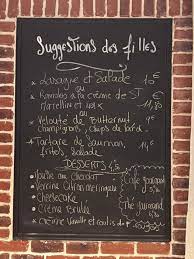 Suggestions des filles
* Lasagne et Salade 10€
ou
* Ravioles à la crème de ST
Marcellin et noix 11,80
ou
* Velouté de Butternut
champignons, chips de lard.
* Tartare de saumon,
frites salade
DESSERTS
au chocolat
* Verrine citron meringuée
* Cheesecake
* Crème Brulée
* Crème vanille et coulis de
Café gourmand
Thé gourmand